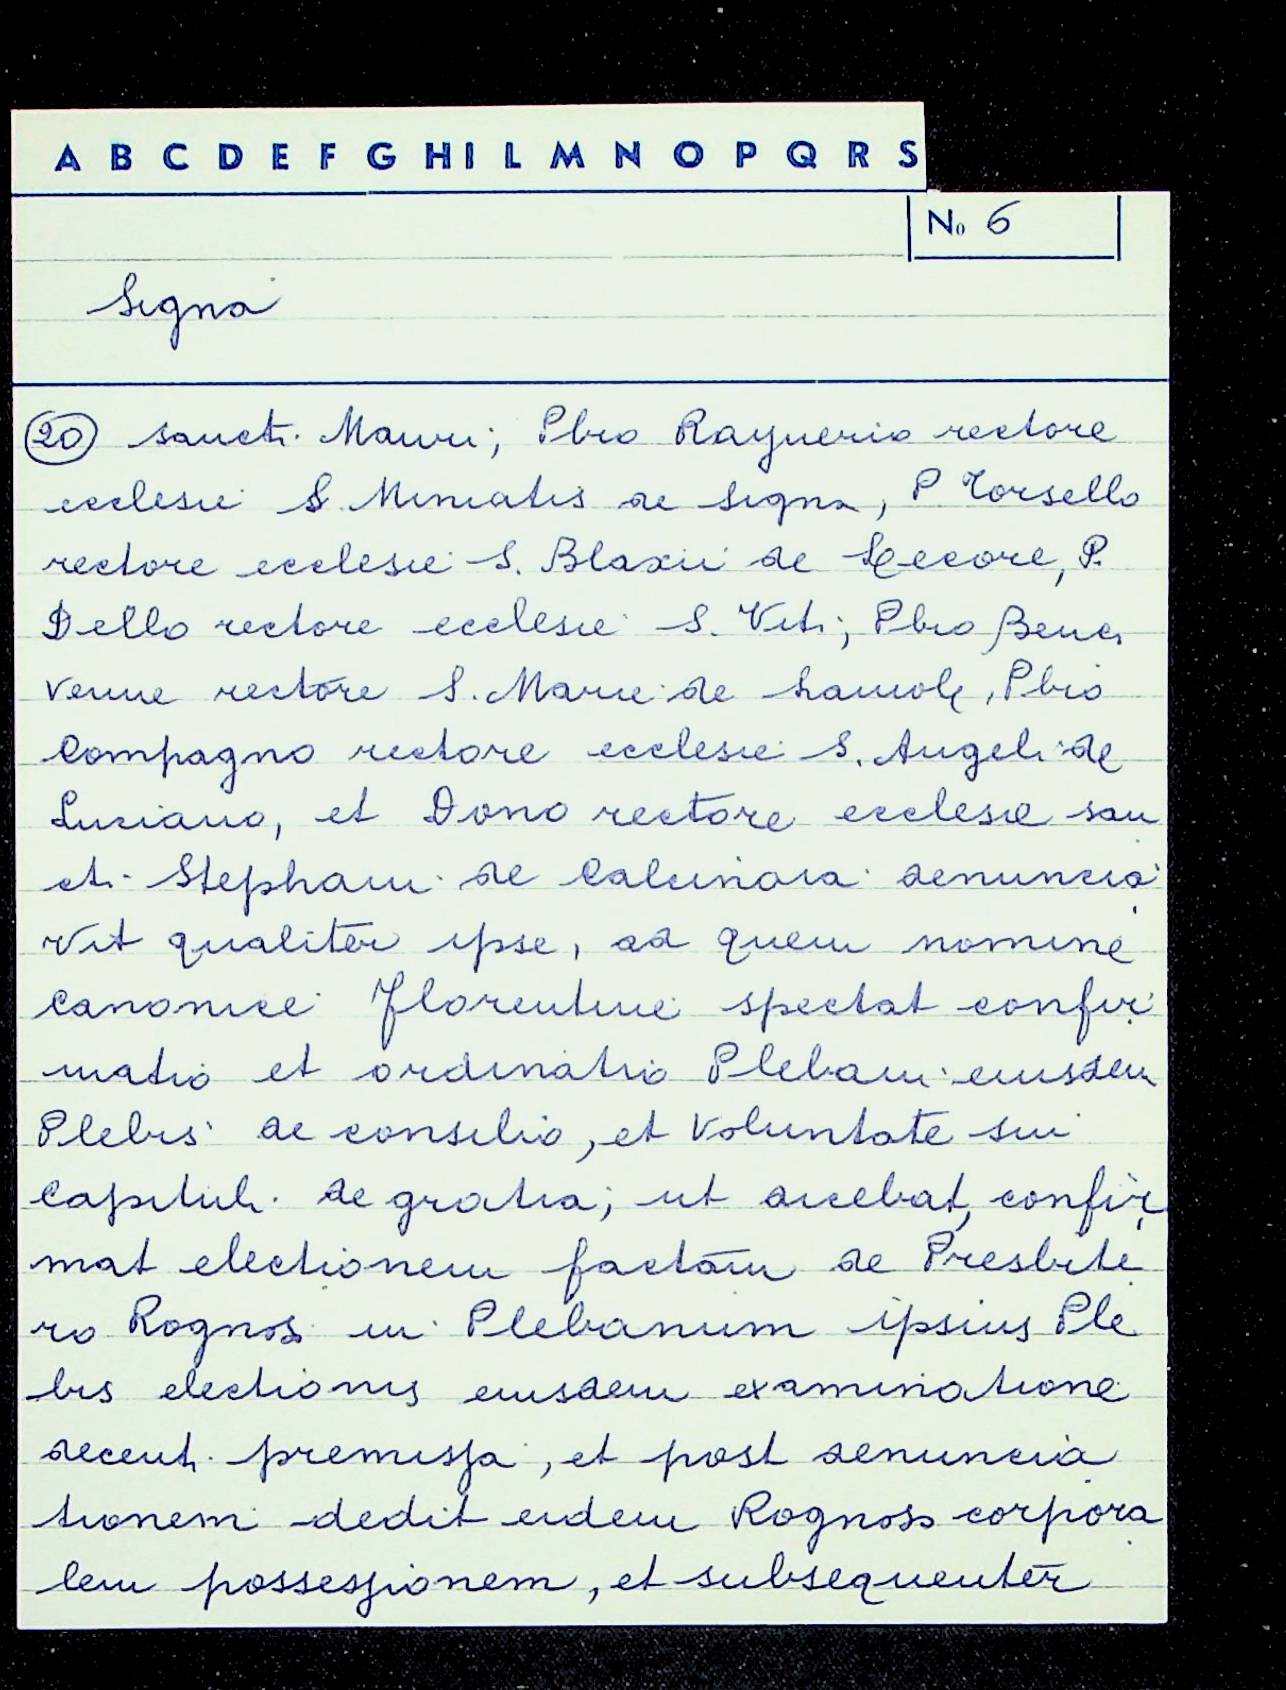 A B C D E F G H I L M N O P Q R S
No 6
Signa
20 sancti Mauri; Pbro Raynerio rectore
ecclesie S Miniatis de Signa, P Torsello
rectore ecclesie S. Blaxii de Lecore, P.
Dello rectore ecclesie S. Viti; Pbro Bene
venne rectore S. Marie de Lamole, Pbro
Compagno rectore ecclesie S. Angeli de
Luciano, et Dono rectore ecclesie san
cti Stephani de Calcinaia denuncia
vit qualiter ipse, ad quem nomine
canonice Florentine spectat confir
matio et ordinatio Plebani eiusdem
Plebis de consilio, et voluntate sui
Capituli de gratia; ut dicebat, confir
mat electionem factam de Presbite
ro Rognoso in Plebanum ipsius Ple
bis electionis eiusdem examinatione
decenti premissa, et post denuncia
tionem dedit eidem Rognoso corpora
lem possessionem, et subsequenter